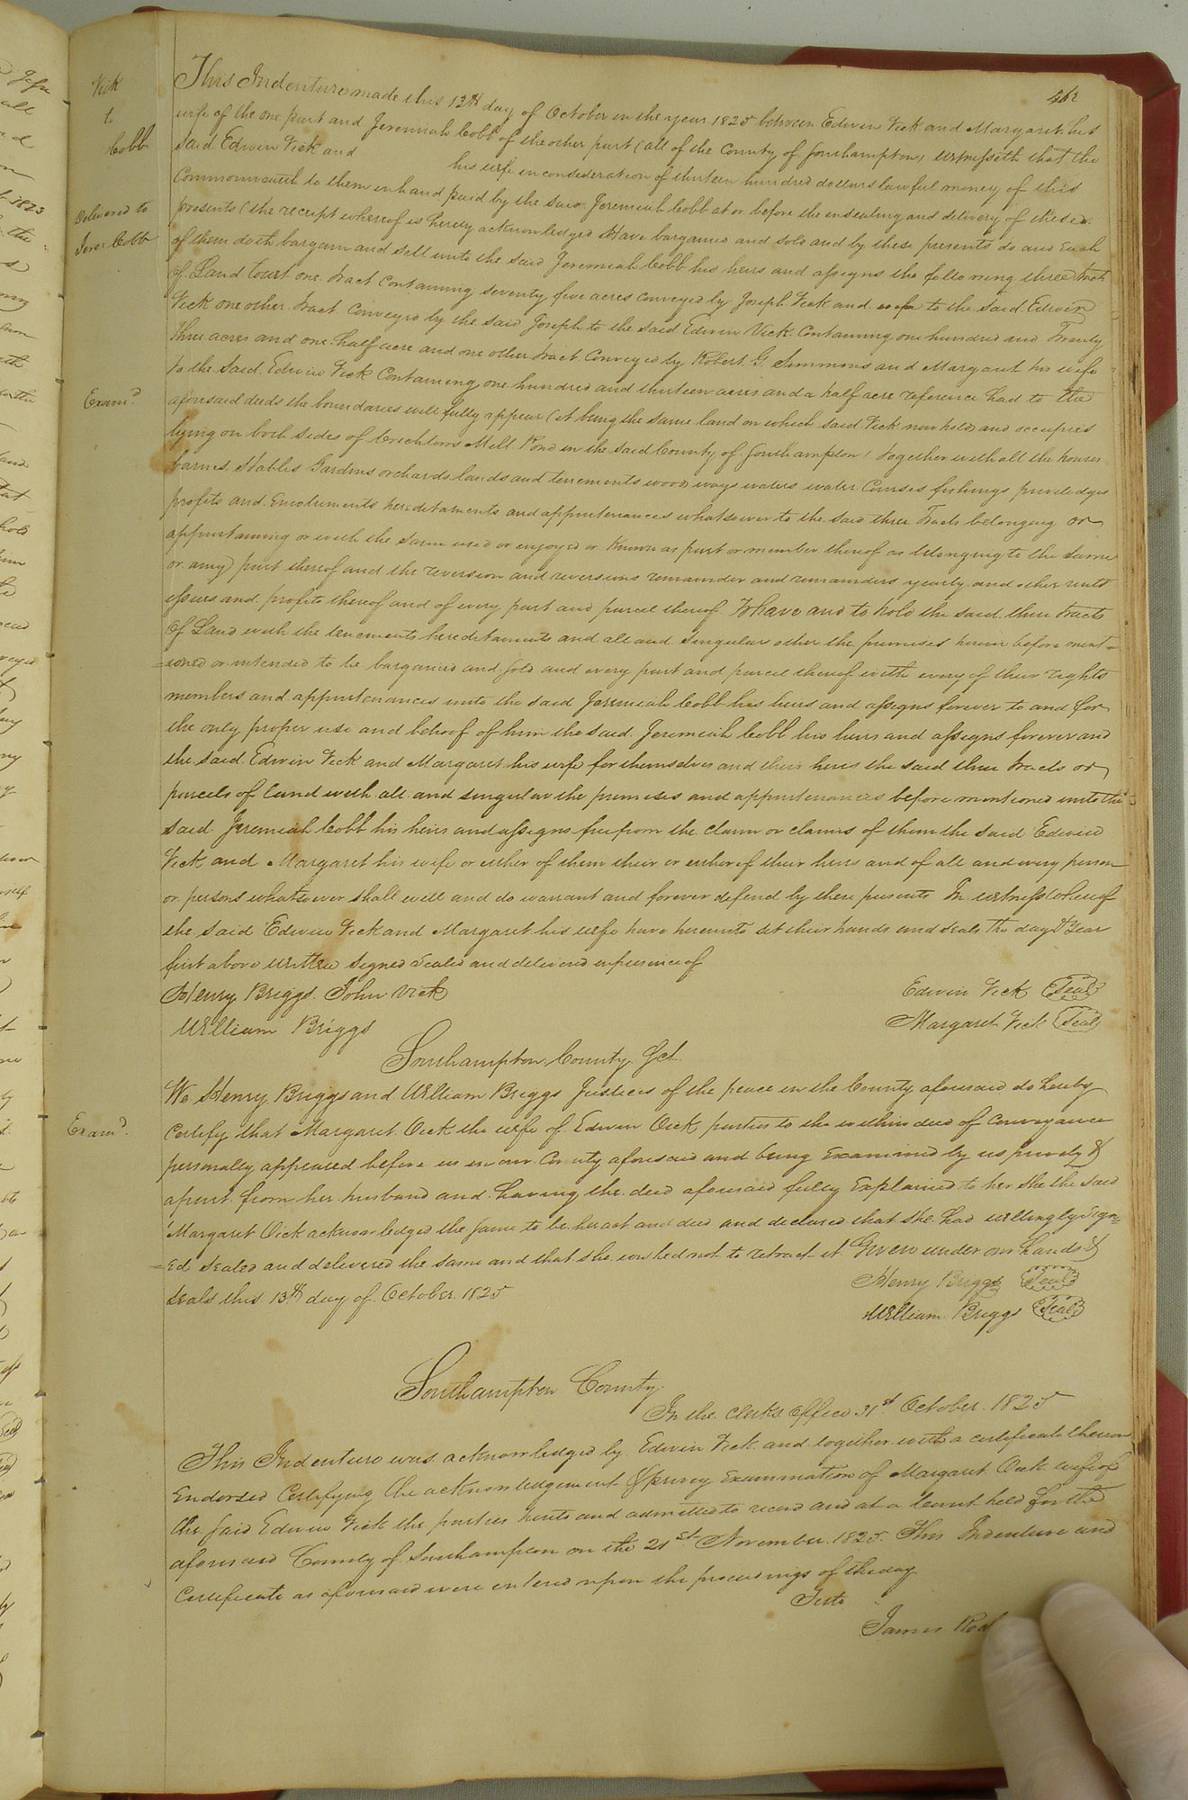 462
Vick
to
Cobb
Delivered to
Jere Cobb
Exam.d
Exam.d
This Indenture made this 13th day of October in the year 1825 between Edwin Vick and Margaret his
wife of the one part and Jeremiah Cobb of the other part (all of the County of Southampton) witnesseth that the
said Edwin Vick and his wife in consideration of thirteen hundred dollars lawful money of this
Commonwealth to them in hand paid by the said Jeremiah Cobb at or before the ensealing and delivery of these
presents (the receipt whereof is hereby acknowledged) Have bargained and sold and by these presents do and each
of them doth bargain and sell unto the said Jeremiah Cobb his heirs and assigns the following three tract
of Land to wit one tract containing seventy five acres conveyed by Joseph Vick and wife to the said Edwin
Vick one other tract conveyed by the said Joseph to the said Edwin Vick containing one hundred and Twenty
three acres and one half acre and one other tract Conveyed by Robert G. Simmons and Margaret his wife
to the said Edwin Vick Containing one hundred and thirteen acres and a half acre reference had to the
aforesaid deeds the boundaries will fully appear (it being the same land on which said Vick now holds and occupies
lying on both sides of Crichlows Mill Pond in the said County of Southampton) together with all the houses
barnes, Stables Gardens orchards lands and tenements woods ways waters water Courses fishings priviledges
profits and Emoluments heredetaments and appurtenances whatsoever to the said three tracts belonging or
appurtaining or with the same used or enjoyed or known as part or member thereof as belonging to the same
or any part thereof and the reversion and reversions remainder and remainders yearly and other rents
issues and profits thereof and of every part and parcel thereof To have and to hold the said three tracts
Of Land with the tenements heredetaments and all and singular other the premises herein before ment=
=ioned or intended to be bargained and sold and every part and parcel thereof with every of their rights
members and appurtenances unto the said Jeremiah Cobb his heirs and assigns forever to and for
the only proper use and behoof of him the said Jeremiah Cobb his heirs and assigns forever and
the said Edwin Vick and Margaret his wife for themselves and their heirs the said three tracts or
parcels of land with all and singular the premises and appurtenances before mentioned unto the
said Jeremiah Cobb his heirs and assigns free from the claim or claims of them the said Edwin
Vick and Margaret his wife or either of them their or either of their heirs and of all and every person
or persons whatsoever shall will and do warrant and forever defend by these presents In witness whereof
the said Edwin Vick and Margaret his wife have hereunto set their hands and seals The day & Year
first above written Signed Sealed and delivered in presence of
Henry Briggs. John Vick Edwin Vick (Seal)
William Briggs Margaret Vick (Seal)
Southampton County Sct.
We Henry Briggs and William Briggs Justices of the peace in the County aforesaid do hereby
Certify that Margaret Vick the wife of Edwin Vick parties to the within deed of Conveyance
personally appeared before us in our County aforesaid and being Examined by us privily &
apart from her husband and having the deed aforesaid fully Explained to her She the said
Margaret Vick acknowledged the same to be her act and deed and declared that she had willingly sign=
=ed sealed and delivered the same and that she wished not to retract it Given under our hands &
seals this 13th day of October 1825
Henry Briggs (Seal)
William Briggs (Seal)
Southampton County
In the Clerks Office 31st October 1825
This Indenture was acknowledged by Edwin Vick and together with a certificate thereon
Endorsed Certifying the acknowledgement & privey Examination of Margaret Vick wife of
the said Edwin Vick the parties hereto and admitted to record and at a Court held for the
aforesaid County of Southampton on the 21st November 1825. This Indenture and
Certificate as aforesaid were entered upon the proceedings of the day
Teste
James